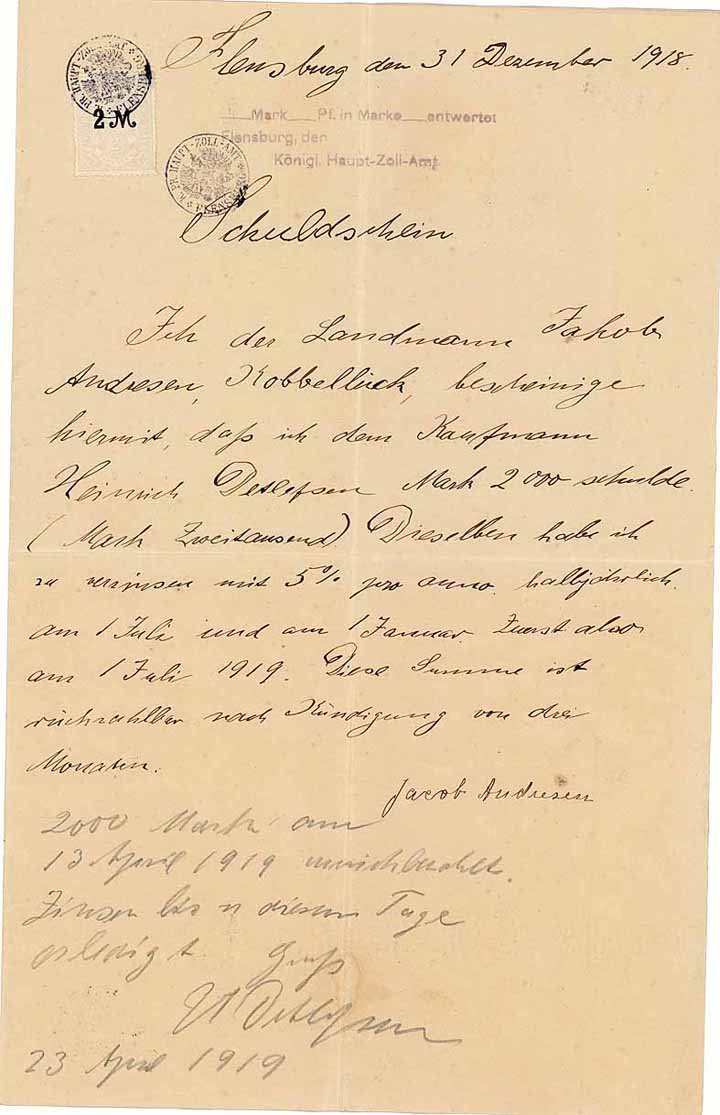 Flensburg den 31 Dezember 1918.
K. PR. HAUPT-ZOLL-AMT FLENSBURG
2 M
Mark Pf. in Marke entwertet
Flensburg, den
Königl. Haupt-Zoll-Amt
K. PR. HAUPT-ZOLL-AMT FLENSBURG
Schuldschein
Ich der Landmann Jakob
Andresen, Kobbellück, bescheinige
hiermit, daß ich dem Kaufmann
Heinrich Detlefsen Mark 2000 schulde.
(Mark Zweitausend) Dieselben habe ich
zu verzinsen mit 5% pro anno. halbjährlich.
am 1 Juli und am 1 Januar. Zuerst also
am 1 Juli 1919. Diese Summe ist
rückzahlbar nach Kündigung von drei
Monaten.
Jacob Andresen
2000 Mark am
13 April 1919
Zinsen bis zu diesem Tage
erledigt. Gruß
H Detlefsen
23 April 1919